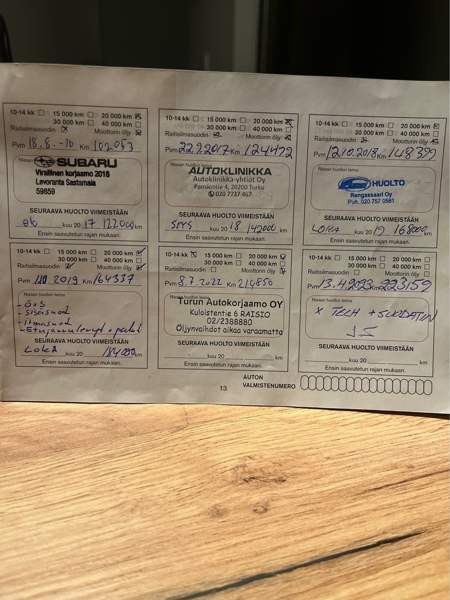 10-14 kk 15 000 km 20 000 km
30 000 km 40 000 km
Raitisilmasuodin Moottorin öljy
Pvm 18.8.-16 Km 102053
Huollon leima
SUBARU
Virallinen korjaamo 2016
Levoranta Sastamala
59859
SEURAAVA HUOLTO VIIMEISTÄÄN
kuu 20 17 122000 km
Ensin saavutetun rajan mukaan.
10-14 kk 15 000 km 20 000 km
30 000 km 40 000 km
Raitisilmasuodin Moottorin öljy
Pvm 22.9.2017 Km 124472
AUTOKLINIKKA
Autoklinikka-yhtiöt Oy
Pansiontie 4, 20200 Turku
020 7727 467
SEURAAVA HUOLTO VIIMEISTÄÄN
SYYS kuu 20 18 142000 km
Ensin saavutetun rajan mukaan.
10-14 kk 15 000 km 20 000 km
30 000 km 40 000 km
Raitisilmasuodin Moottorin öljy
Pvm 12.10.2018 Km 148399
HUOLTO
Rengassaari Oy
Puh. 020 757 0581
SEURAAVA HUOLTO VIIMEISTÄÄN
LOKA kuu 20 19 168000 km
Ensin saavutetun rajan mukaan.
10-14 kk 15 000 km 20 000 km
30 000 km 40 000 km
Raitisilmasuodin Moottorin öljy
Pvm 10 2019 Km 164337
- ö+s
- sisäsuod
- ilmansuod
SEURAAVA HUOLTO VIIMEISTÄÄN
LOKA kuu 20 184000 km
Ensin saavutetun rajan mukaan.
10-14 kk 15 000 km 20 000 km
30 000 km 40 000 km
Raitisilmasuodin Moottorin öljy
Pvm 8.7.2022 Km 210850
Turun Autokorjaamo OY
Kuloistentie 6 RAISIO
02/2388880
Öljynvaihdot aikaa varaamatta
SEURAAVA HUOLTO VIIMEISTÄÄN
kuu 20 km
Ensin saavutetun rajan mukaan.
10-14 kk 15 000 km 20 000 km
30 000 km 40 000 km
Raitisilmasuodin Moottorin öljy
Pvm 13.4.2023 Km 223159
X TECH + SUODATIN
JS
SEURAAVA HUOLTO VIIMEISTÄÄN
kuu 20 km
Ensin saavutetun rajan mukaan.
13
AUTON
VALMISTENUMERO